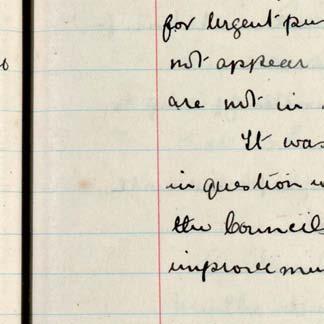 for urgent pur
not appear
are not in
It was
in question
the Councils
improvemen